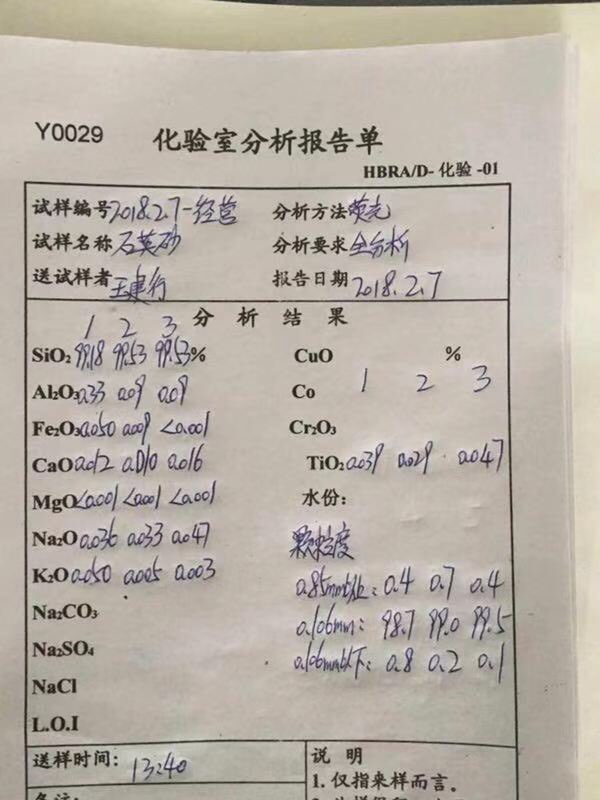 Y0029 化验室分析报告单
HBRA/D-化验-01
试样编号2018.2.7-经营 分析方法荧光
试样名称石英砂 分析要求全分析
送试样者王建行 报告日期2018.2.7
1 2 3 分析结果
SiO₂ 99.18 99.53 99.53% CuO %
Al₂O₃ 0.33 0.09 0.09 Co 1 2 3
Fe₂O₃ 0.050 0.009 <0.001 Cr₂O₃
CaO 0.012 0.010 0.016 TiO₂ 0.039 0.029 0.047
MgO <0.001 <0.001 <0.001 水份:
Na₂O 0.036 0.033 0.047 颗粒度
K₂O 0.050 0.005 0.003 0.85mm以上: 0.4 0.7 0.4
Na₂CO₃ 0.106mm: 98.7 99.0 99.5
Na₂SO₄ 0.106mm以下: 0.8 0.2 0.1
NaCl
L.O.I
送样时间: 13:40 说 明
1. 仅指来样而言。